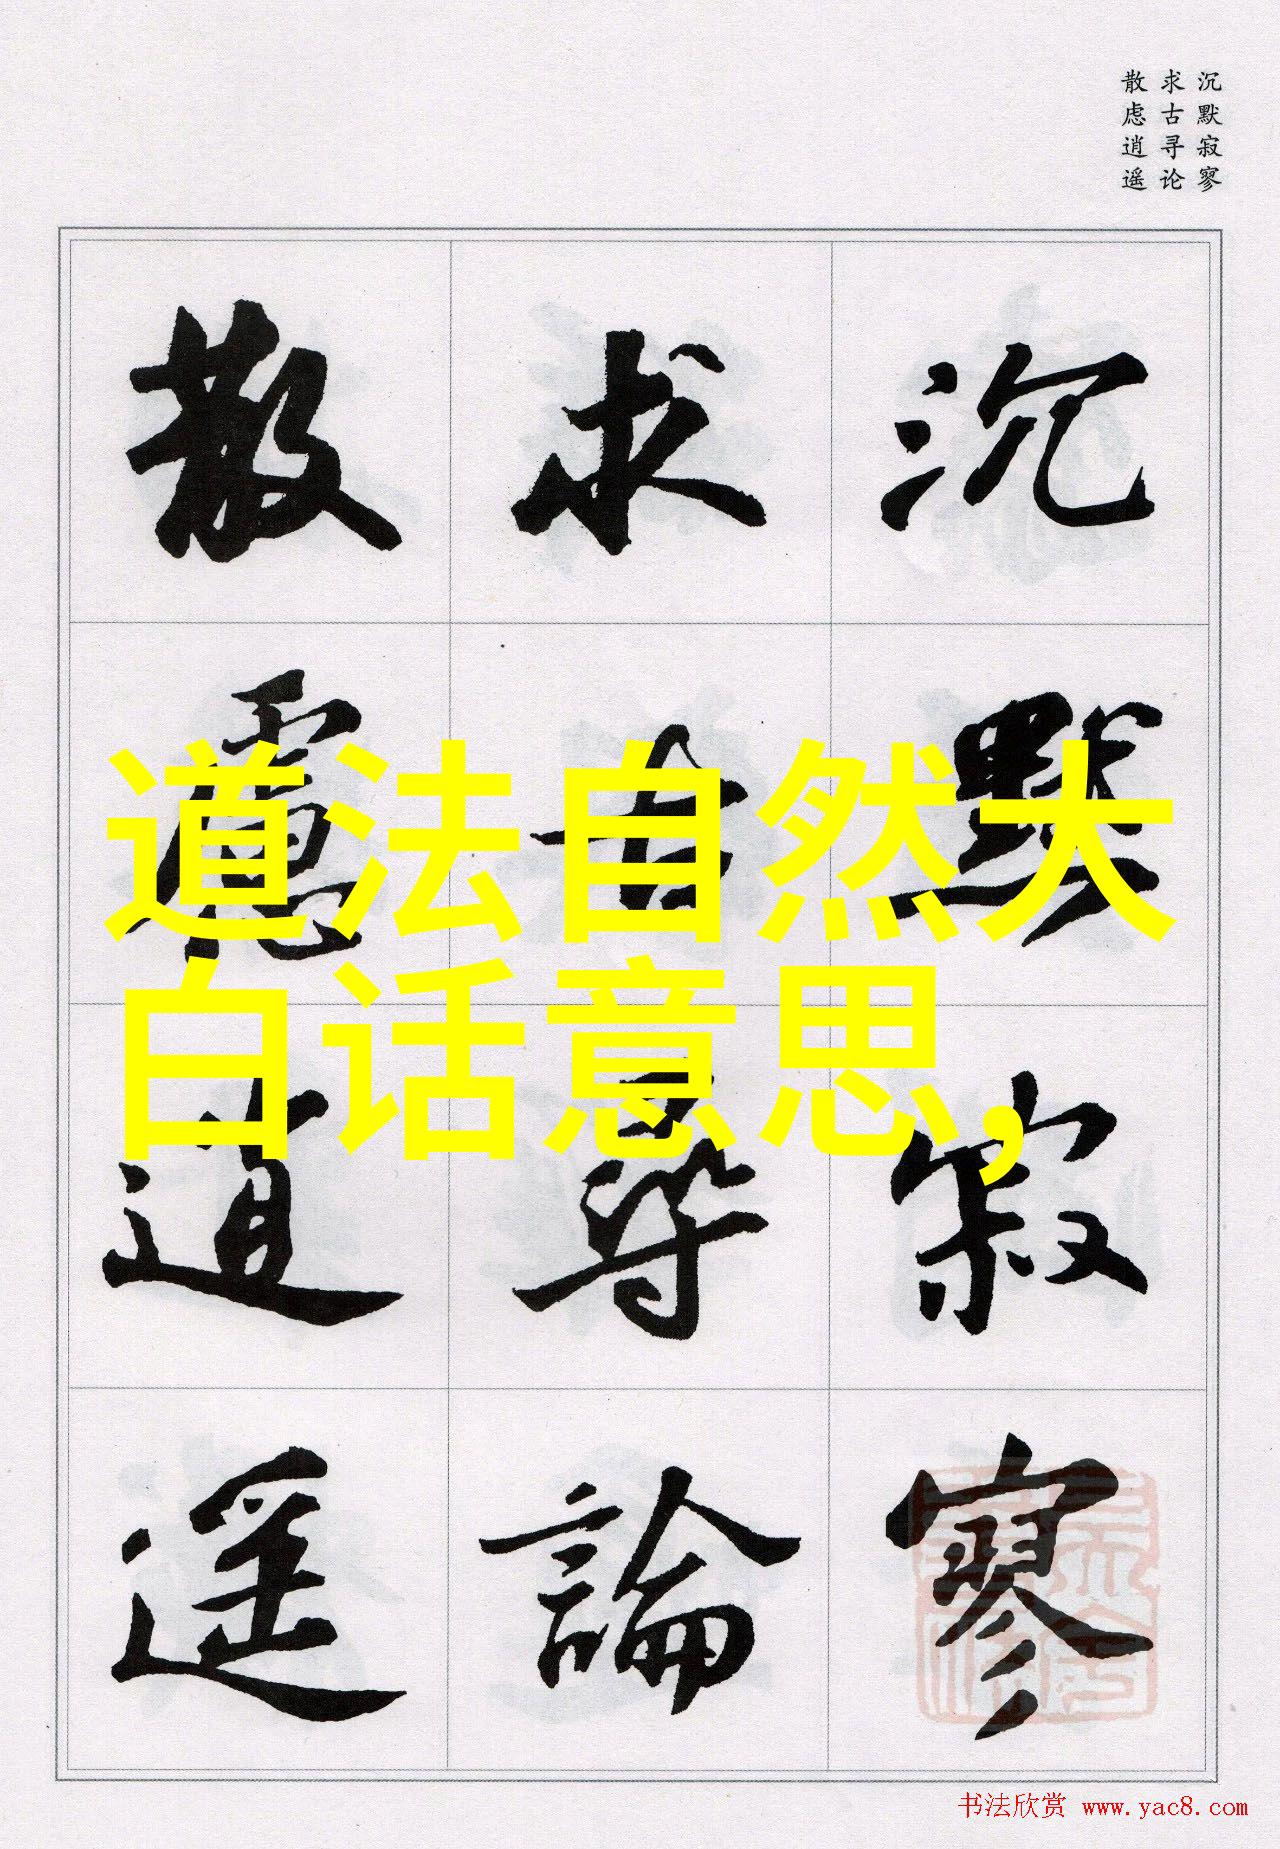 沉默寂寥
求古寻论
散虑逍遥
沉默寂寥
求古尋論
散慮逍遥
道法自然大
白话意思,
书法欣赏 www.yac8.com